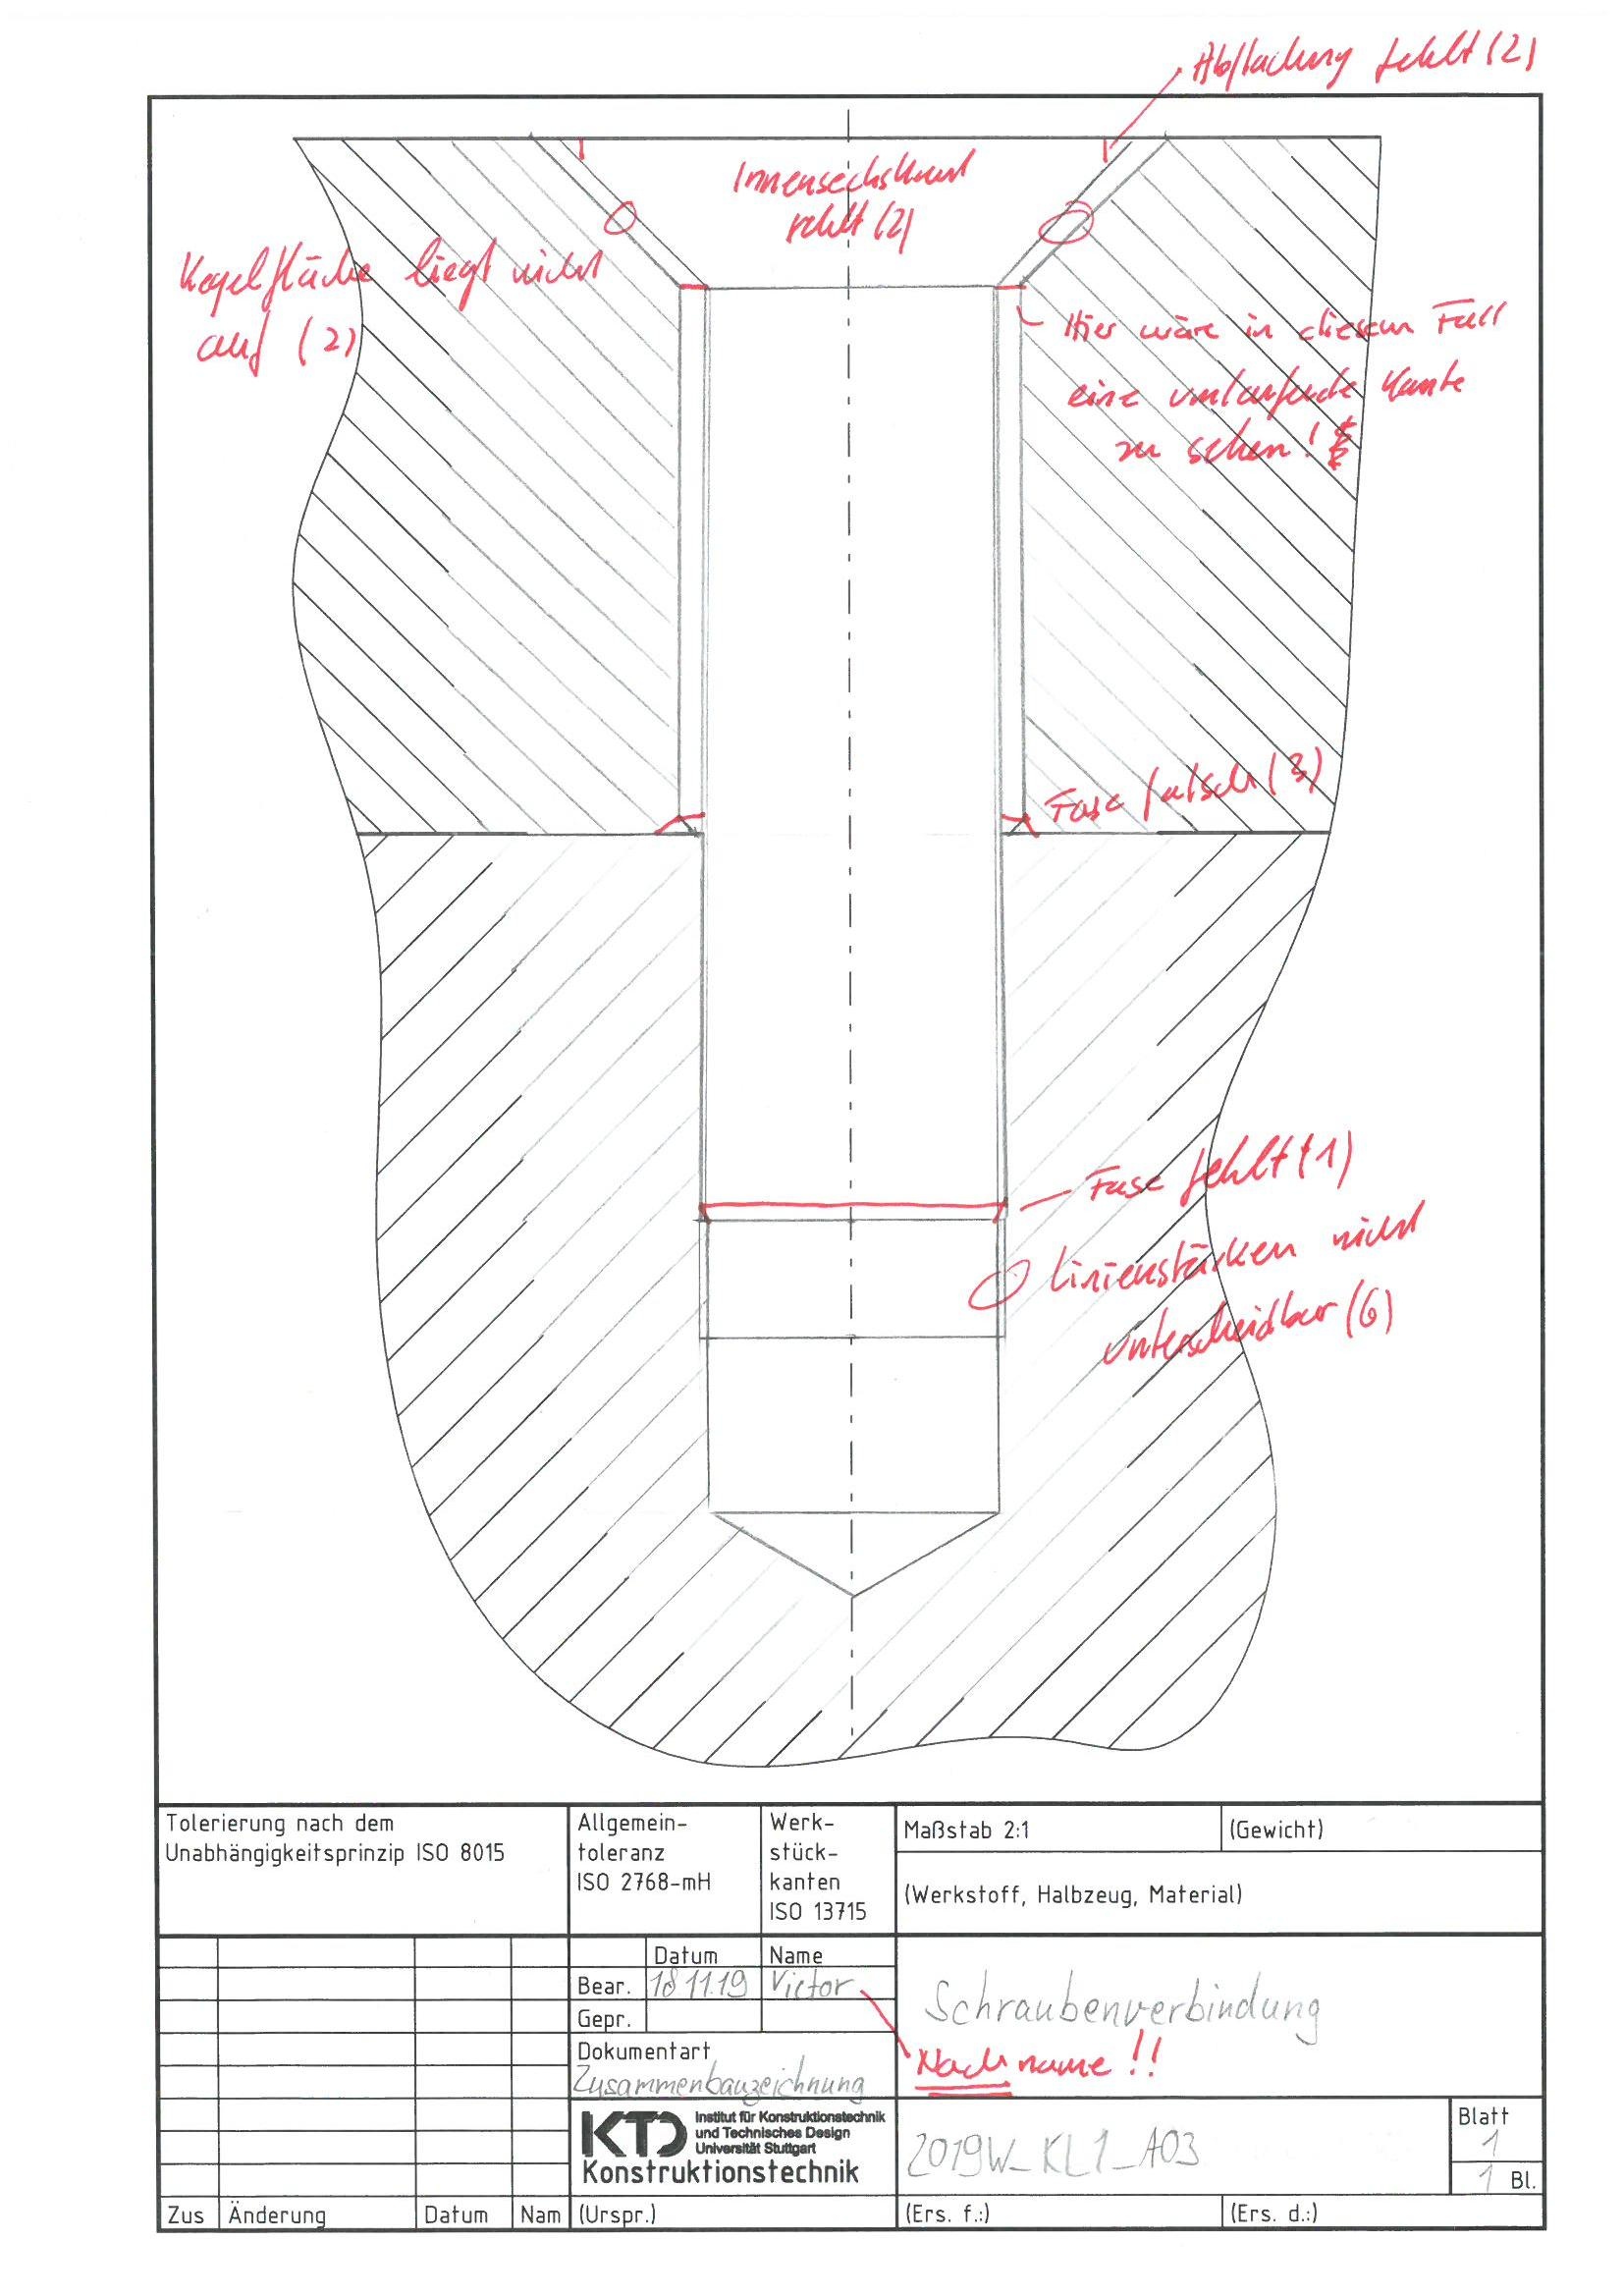 Abflachung fehlt (2)
Innensechskant
fehlt (2)
Kegelfläche liegt nicht
auf (2)
Hier wäre in diesem Fall
eine umlaufende Kante
zu sehen!
Fase falsch (3)
Fase fehlt (1)
Linienstärken nicht
unterscheidbar (6)
Tolerierung nach dem
Unabhängigkeitsprinzip ISO 8015
Allgemein-
toleranz
ISO 2768-mH
Werk-
stück-
kanten
ISO 13715
Maßstab 2:1
(Gewicht)
(Werkstoff, Halbzeug, Material)
Datum Name
Bear. 18.11.19 Victor
Gepr.
Schraubenverbindung
Nachname!!
Dokumentart
Zusammenbauzeichnung
KTD Institut für Konstruktionstechnik
und Technisches Design
Universität Stuttgart
Konstruktionstechnik
2019W_KL1_A03
Blatt
1
1 Bl.
Zus Änderung Datum Nam (Urspr.) (Ers. f.:) (Ers. d.:)